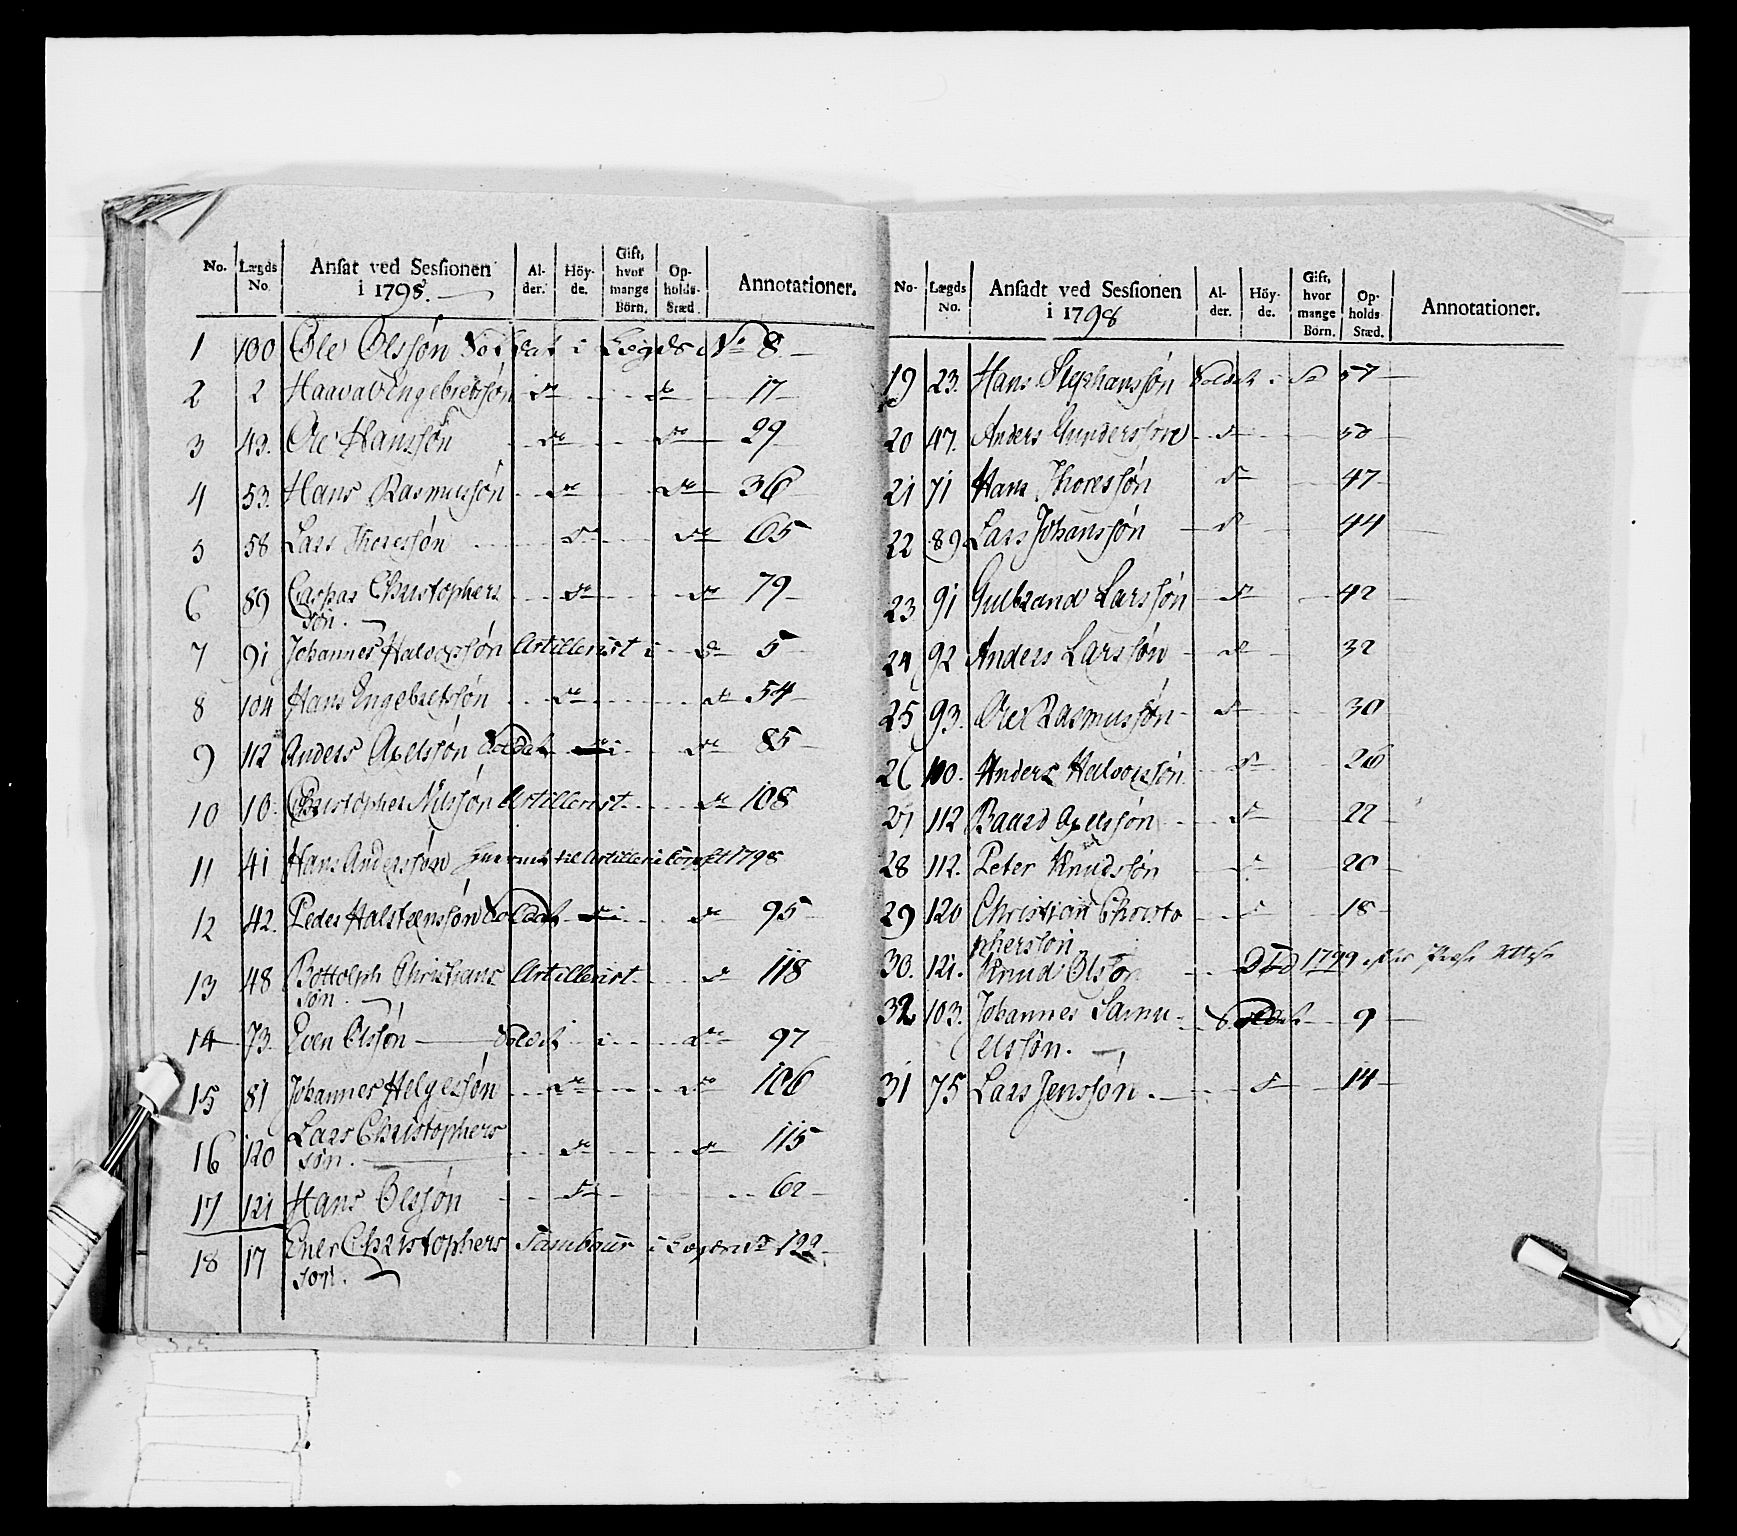 No. Lægds No. Ansat ved Sessionen i 1798. Al-der. Höy-de. Gift, hvor mange Börn. Op-holds-Stæd. Annotationer.
1 100 Ole Olssøn Soldat i Lægds No 8
2 2 Haavav Engebretssøn do do 17
3 43. Ole Hanssøn do do 29
4 53. Hans Rasmussøn do do 36
5 58 Lars Thoressøn do do 65
6 89 Caspar Christophers do do 79
søn.
7 91 Johannes Halvorssøn Artillerist i do 5
8 104 Hans Engebretssøn do do 54
9 112 Anders Axelssøn Soldat i do 85
10 10. Christopher Nilssøn Artillerist do 108
11 41 Hans Anderssøn til Artillerie 1798
12 42. Peder Halsteenssøn Soldat i do 95
13 48 Bottolph Christians Artillerist do 118
søn.
14 73. Even Olssøn Soldat i do 97
15 81 Johannes Helgessøn do do 106
16 120 Lars Christophers do do 115
søn.
17 121 Hans Olssøn do 62
18 17 Ener Christophers Tambour i Lægd No 122
søn.
No. Lægds No. Ansadt ved Sessionen i 1798 Al-der. Höy-de. Gift, hvor mange Börn. Op-holds-Stæd. Annotationer.
19 23. Hans Stephanssøn Soldat i do 57
20 47. Anders Gunderssøn do 50
21 71 Hans Thoressøn do 47
22 89 Lars Johanssøn do 44
23 91 Gulbrand Larssøn do 42
24 92 Anders Larssøn do 32
25 93. Ole Rasmussøn do 30
26 100. Anders Halvorssøn do 26
27 112 Baard Axelssøn do 22
28 112. Peter Knudssøn do 20
29 120 Christian Christo do 18
pherssøn
30. 121. Knud Olssøn Död 1799 efter Præste Attest
32 103. Johannes Samu Soldat 9
elssøn.
31 75 Lars Jenssøn. do 14